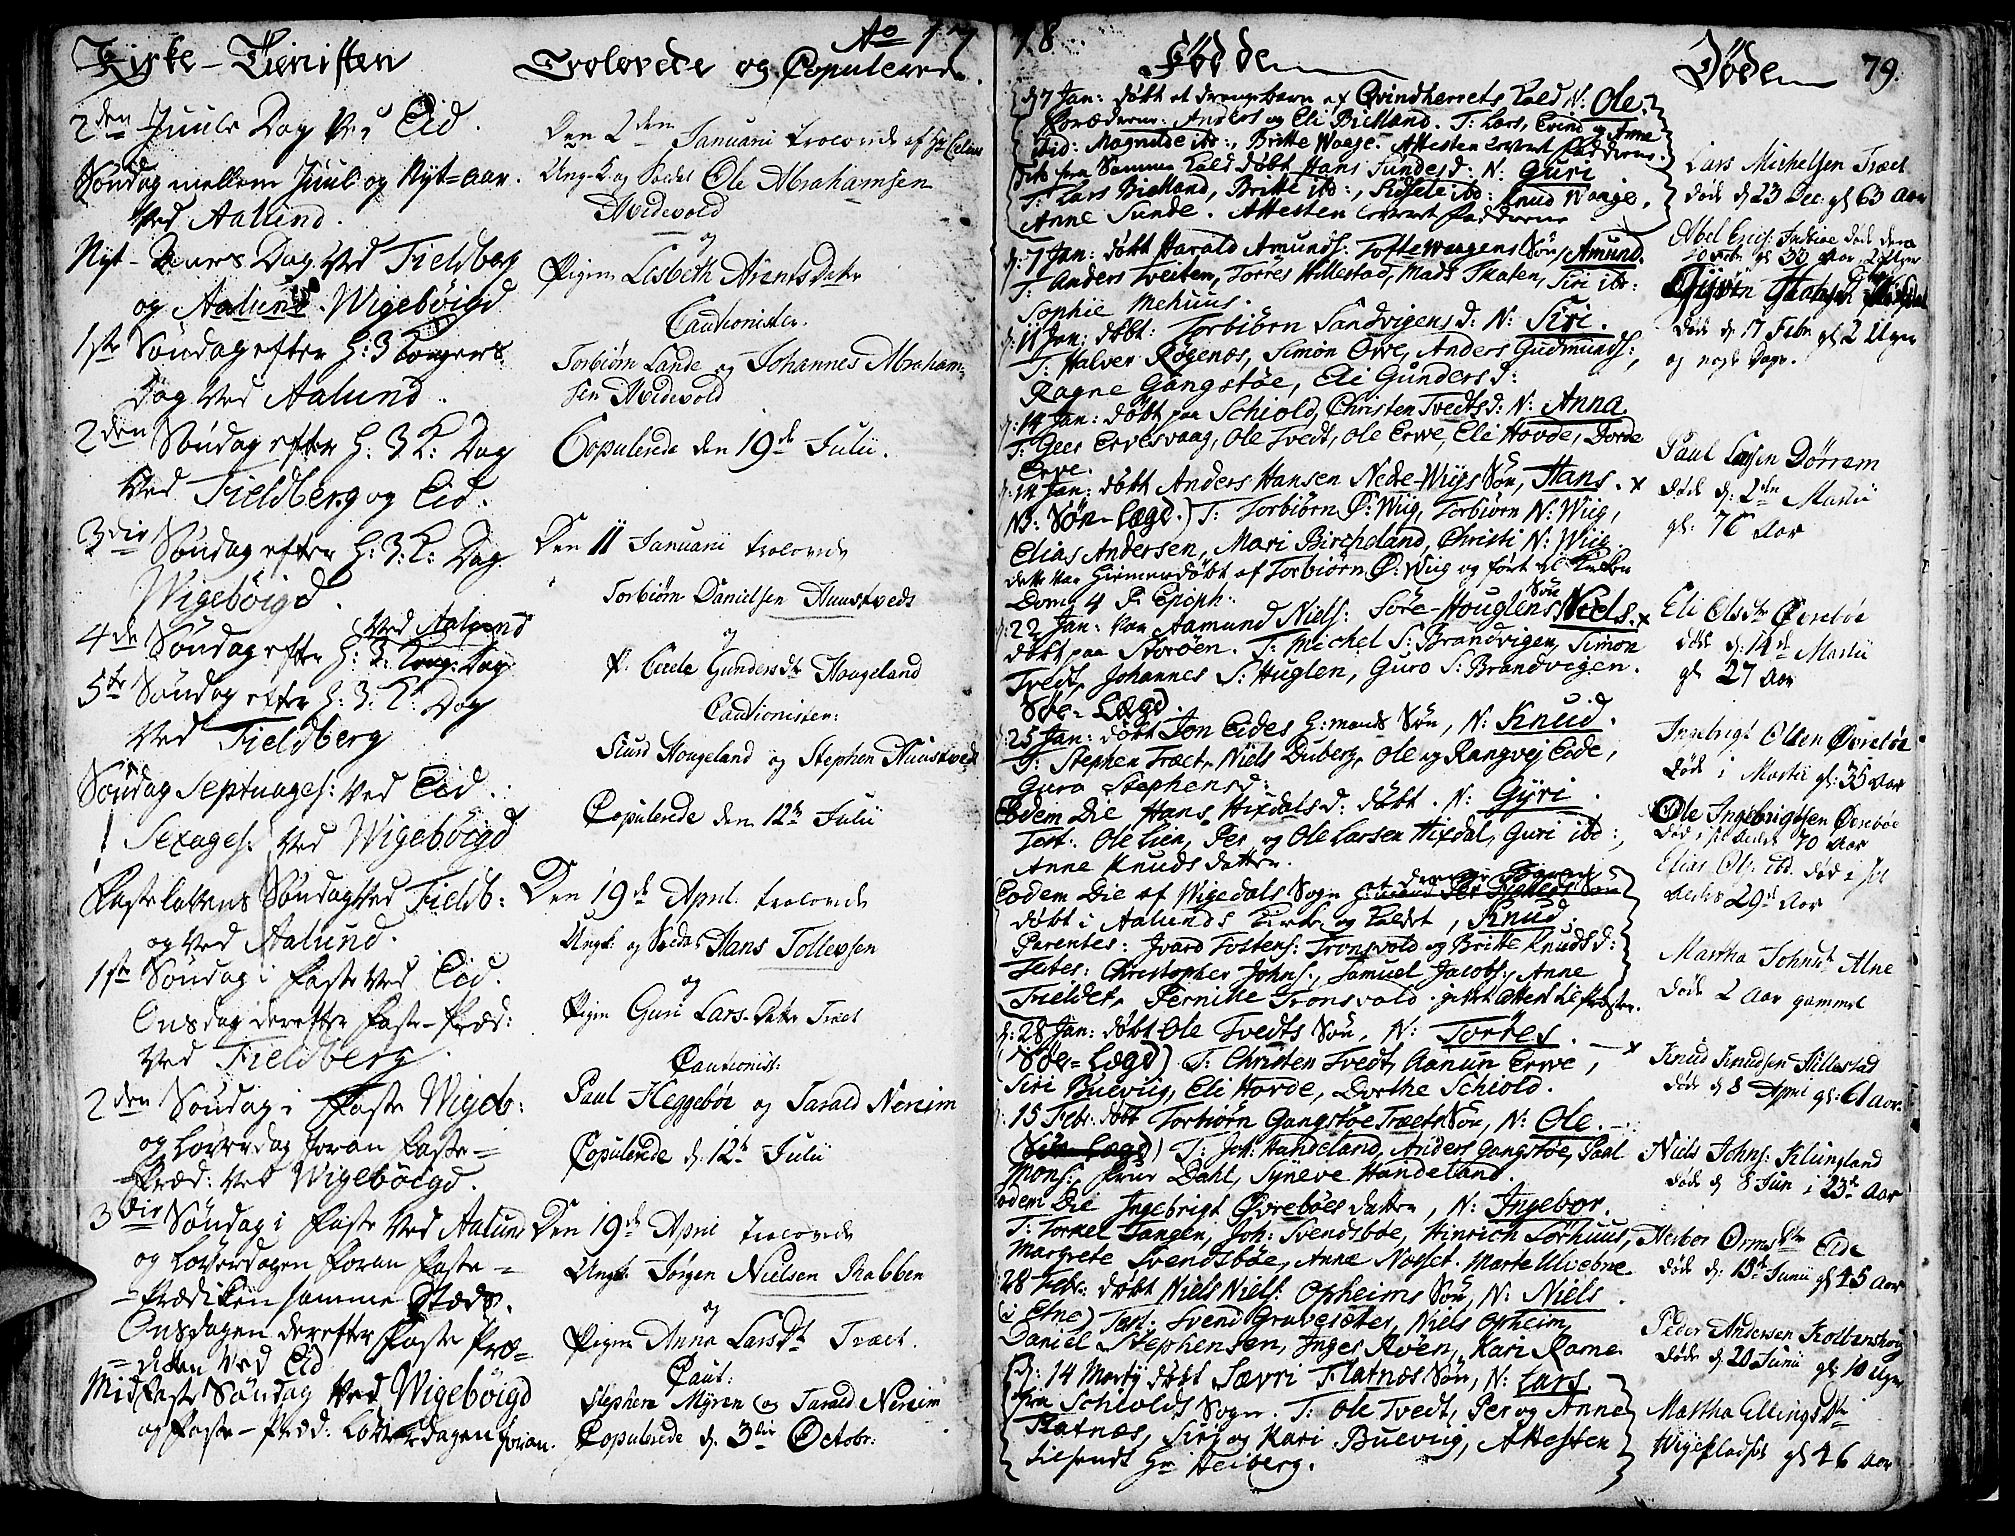 Ao 1778
Kirke-Tienisten
2den Juule Dag Ved Eid.
Søndag mellem Juul og Nyt-aar.
Ved Aalund.
Nyt-Aars Dag Ved Fieldberg
og Aalund. Wigebøigd
1ste Søndag efter H: 3 Kongers
Dag Ved Aalund.
2den Søndag efter H: 3 K: Dag
Ved Fieldberg og Eid.
3die Søndag efter H: 3: K: Dag
Wigebøigd.
Ved Aalund
4de Søndag efter H: 3: Kong: Dag
5te Søndag efter H: 3: K: Dag
Ved Fieldberg
Søndag Septuages: Ved Eid.
Sexages: Ved Wigebøigd
Fastelavens Søndag Ved Fieldb:
og Ved Aalund.
1ste Søndag i Faste Ved Eid.
Onsdag derefter Faste-Præd:
Ved Fieldberg.
2den Søndag i Faste Wigeb:
og Løverdag foran Faste-
Præd: Ved Wigebøigd.
3die Søndag i Faste Ved Aalund
og Løverdagen foran Faste-
Prædiken samme Stæds.
Onsdagen derefter Faste Præ-
diken Ved Eid
Midfaste Søndag Ved Wigebøigd
og Faste-Præd: Løverdagen foran.
Trolovede og Copulerede.
Den 2den Januarii trolovede af Hr
Ungk. og Soldat Ole Abrahamsen
Midevold
og
Pigen Lisbeth Arentsdatr
Cautionister.
Torbiørn Lande og Johannes Abraham-
sen Midevold
Copulerede den 19de Julii.
Den 11 Januarii trolovede
Torbiørn Danielsen Huustveds
og
P. Gundersdr Hougeland
Cautionister:
Siurd Hougeland og Stephen Huustved
Copulerede den 12te Julii
Den 19de April trolovede
Ungk: og Soldat Hans Tollefsen
og
Pigen Guri Lars-Datr Træet
Cautionist:
Paul Heggebøe og Tarald Nereim
Copulerede d. 12te Julii
Den 19de April trolovede
Ungk. Jørgen Nielsen Rabben
og
Pigen Anna Larsdr Træet.
Caut:
Stephen Myren og Tarald Nereim
Copulerede d. 3die Octobr:
Fødde
d: 7 Jan: døbt et drengebarn af Qvindherrets Kald N: Ole.
Forældrene: Anders og Eli Bielland. T: Lars, Erind og Anne
ibid: Magnilde ibd:, Britte Waage. Attesten leveret Fadderne.
Dito fra Samme Kald døbt Hans Sundes d: N: Guri
T: Lars Bielland, Britte ibd:, Sissele ibd: Knud Waage,
Anne Sunde. Attesten leveret Fadderne
d: 7 Jan: døbt Harald Amunds: Toftewaagens Søn, Amund.
T: Anders Tveiten, Torres Hillestad, Mads Skaten, Siri ibd:
Sophie Mehuus.
d: 11 Jan: døbt: Torbiørn Sandvigens d: N: Siri.
T: Halver Røgenæs, Simon Erve, Anders Gudmunds:,
Ragne Gangstøe, Eli Gunders d:
d: 14 Jan: døbt paa Schiold, Christen Tvedts d: N: Anna.
T: Geer Ervesvaag, Ole Tvedt, Ole Erve, Eli Hovde, Dorde
Erve.
d: 14 Jan: døbt Anders Hansen Nedre-Wiigs Søn, Hans. x
NB: Søn-Lægd.) T: Torbiørn Ø: Wiig, Torbiørn N: Wiig,
Elias Andersen, Mari Bircheland, Christi N: Wiig.
dette var hiemmedøbt af Torbiørn Ø: Wiig og ført til Kirken
Dom: 4 P: Epiph:
d: 22 Jan: Var Aamund Niels: Søre-Houglens Søn Niels. x
døbt paa Storøen. T: Michel S: Brandvigen, Simon
Tvedt, Johannes S: Huglen, Guro S: Brandvigen.
Søe-Lægd.
d: 25 Jan: døbt Jon Eides H:mands Søn, N: Knud.
T: Stephen Træet, Niels Duberg, Ole og Rangvej Eide,
Guro Stephens d:
Eodem Die Hans Hixdals d: døbt. N: Gyri.
Test: Ole Lien, Per og Ole Larsen Hixdal, Guri ibd:,
Anne Knudsdatter.
Eodem Die af Wigedals Sogn
døbt i Aalunds Kirke og Kaldet, Knud.
Parentes: Ivard Fostens: Tronsvold og Britte Knuds d:
Testes: Christopher Johns:, Samuel Jacobs:, Anne
Field, Pernille Tronsvold. givet attest til Præsten.
d: 28 Jan: døbt Ole Tvedts Søn, N: Torres.
(Søe-Lægd) T: Christen Tvedt, Aanun Erve, x
Siri Buevig, Eli Hovde, Dorthe Schiold.
d: 15 Febr: døbt Torbiørn Gangstøe Træets Søn, N: Ole.
(Søe-Lægd) T: Joh: Handeland, Anders Gangstøe, Paul
Mons:, Dahl, Syneve Handeland.
Eodem Die Ingebrigt Øvrebøes datter, N: Ingebor.
T: Torkel Tangen, Joh: Svendsbøe, Hinrich Sørhuus,
Margrete Svendsbøe, Anne Marte Ulvebne.
28 Febr: døbt Niels Niels: Opheims Søn, N: Niels.
(i Etne) Test: Svend Gravesæter, Niels Opheim,
Daniel Stephensen, Inger Røen, Kari Rame.
d: 14 Martij døbt Sævri Flatnæs Søn, N: Lars
Fra Schiolds Sogn. T: Ole Tvedt, Per og Anne
Flatnæs, Siri og Kari Buevig, Attesten
tilsendt Hr Heiberg.
Døde
79.
Lars Michelsen Træet
døde d: 23 Dec: gl: 63 Aar
Abel Erics: døde den
Febr: gl: 30 Aar
døde d: 17 Febr: gl: 2 Uger
og nogle Dage.
Paul Larsen Dørrem
døde d: 2den Martii
gl: 76 Aar
Eli Olsdtr Øvrebøe
døde d: 14de Martii
gl: 27 Aar
Ingebrigt Olsen Øvrebøe
døde i Martii gl: 35 Aar
Ole Ingebrigtsen Øvrebøe
død i sit Alders 70 Aar
Elias Ols: ibd. død i sit
Alders 29de Aar
Martha Johnsdr Alne
døde 2 Aar gammel
Knud Knudsen Hillestad
døde d. 8 April gl: 61 Aar.
Niels Johns: Klungland
døde d. 8 Jun i 23de Aar
Herbor Ormsdtr Eide
døde d: 13de Junii gl: 45 Aar
Peder Andersen Kolbanskoug
døde d. 20 Junii gl: 10 Uger
Martha Ellingsdtr
Wigepladset gl: 46 Aar